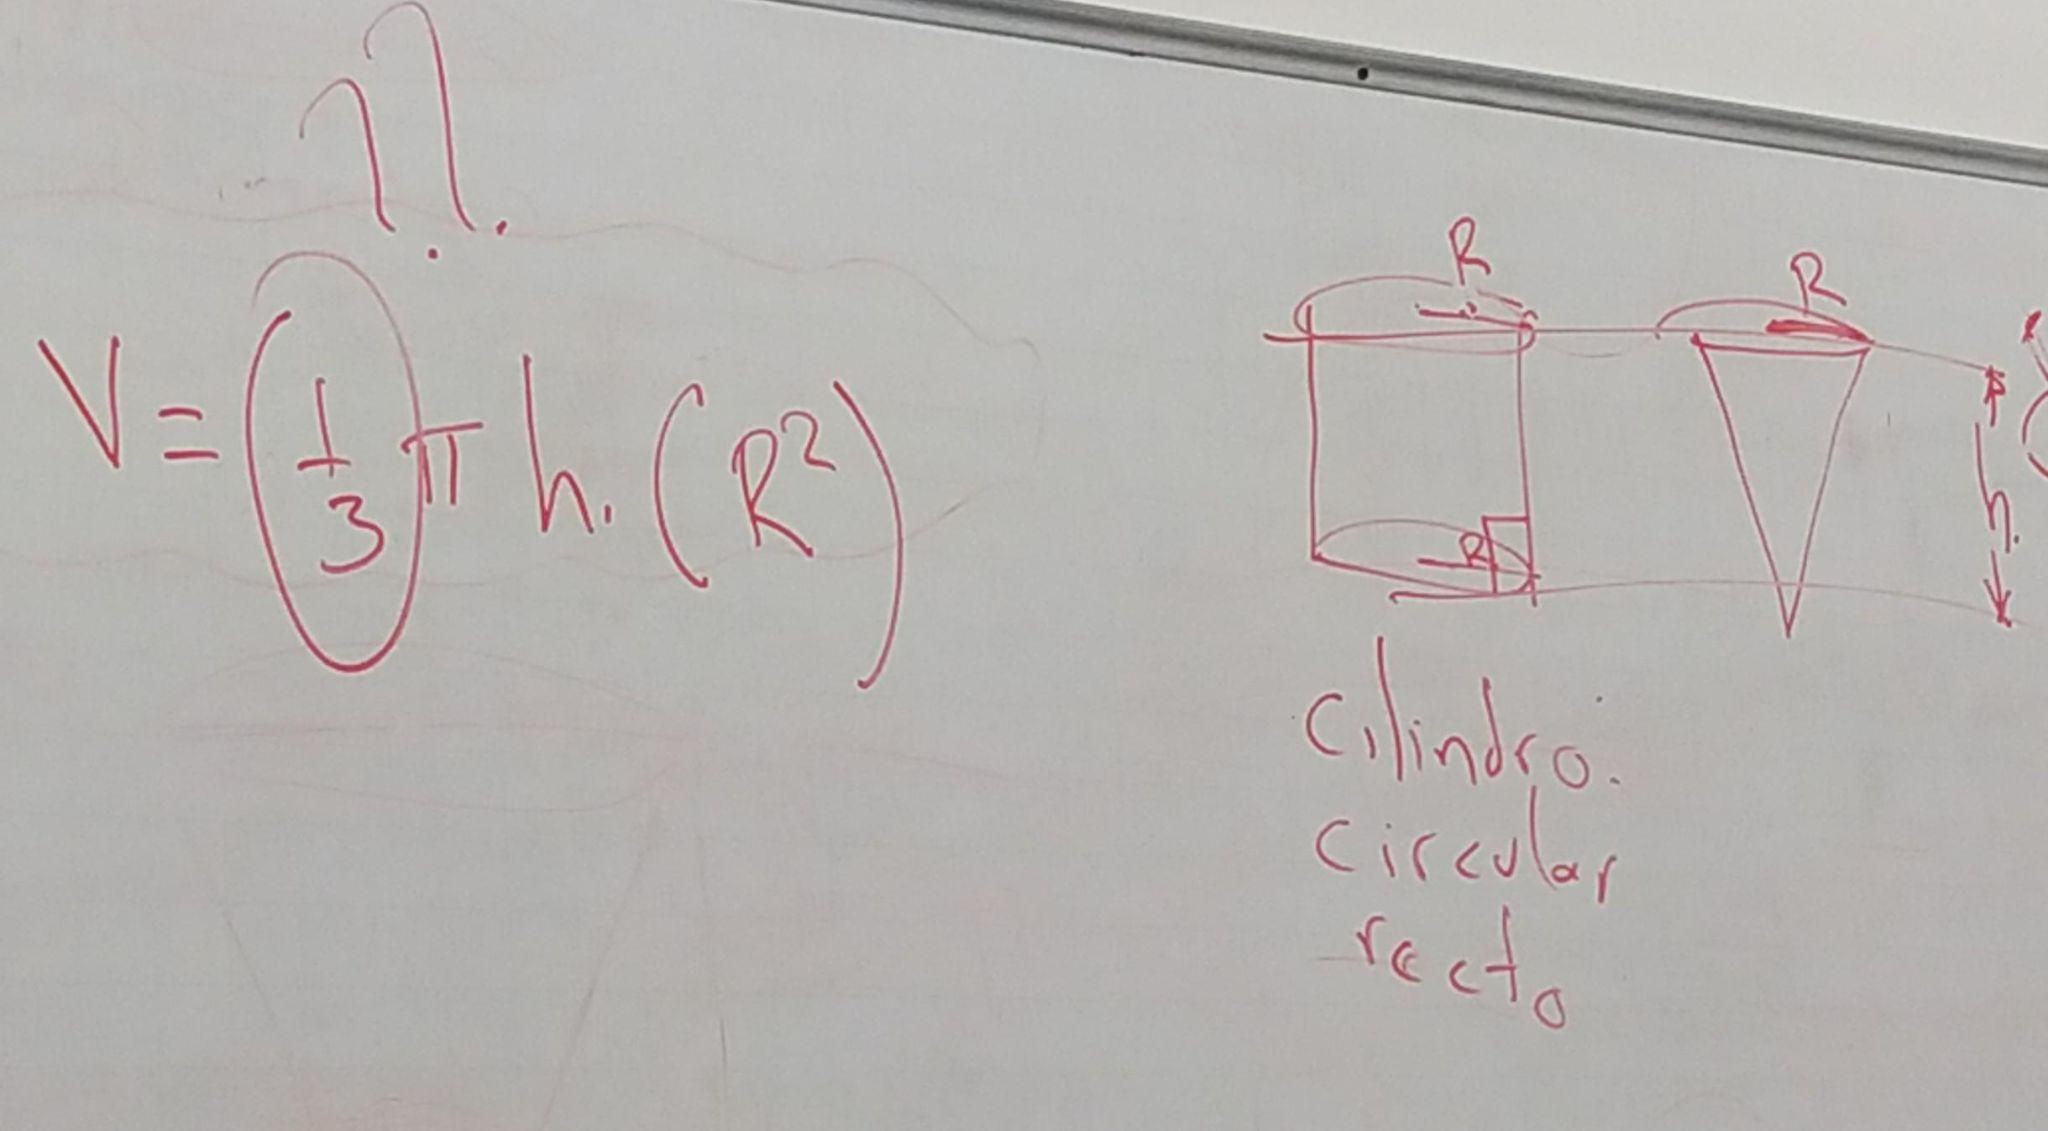 ??
V = (1/3) π h. (R²)
R
R
R
h.
Cilindro.
Circular
recto